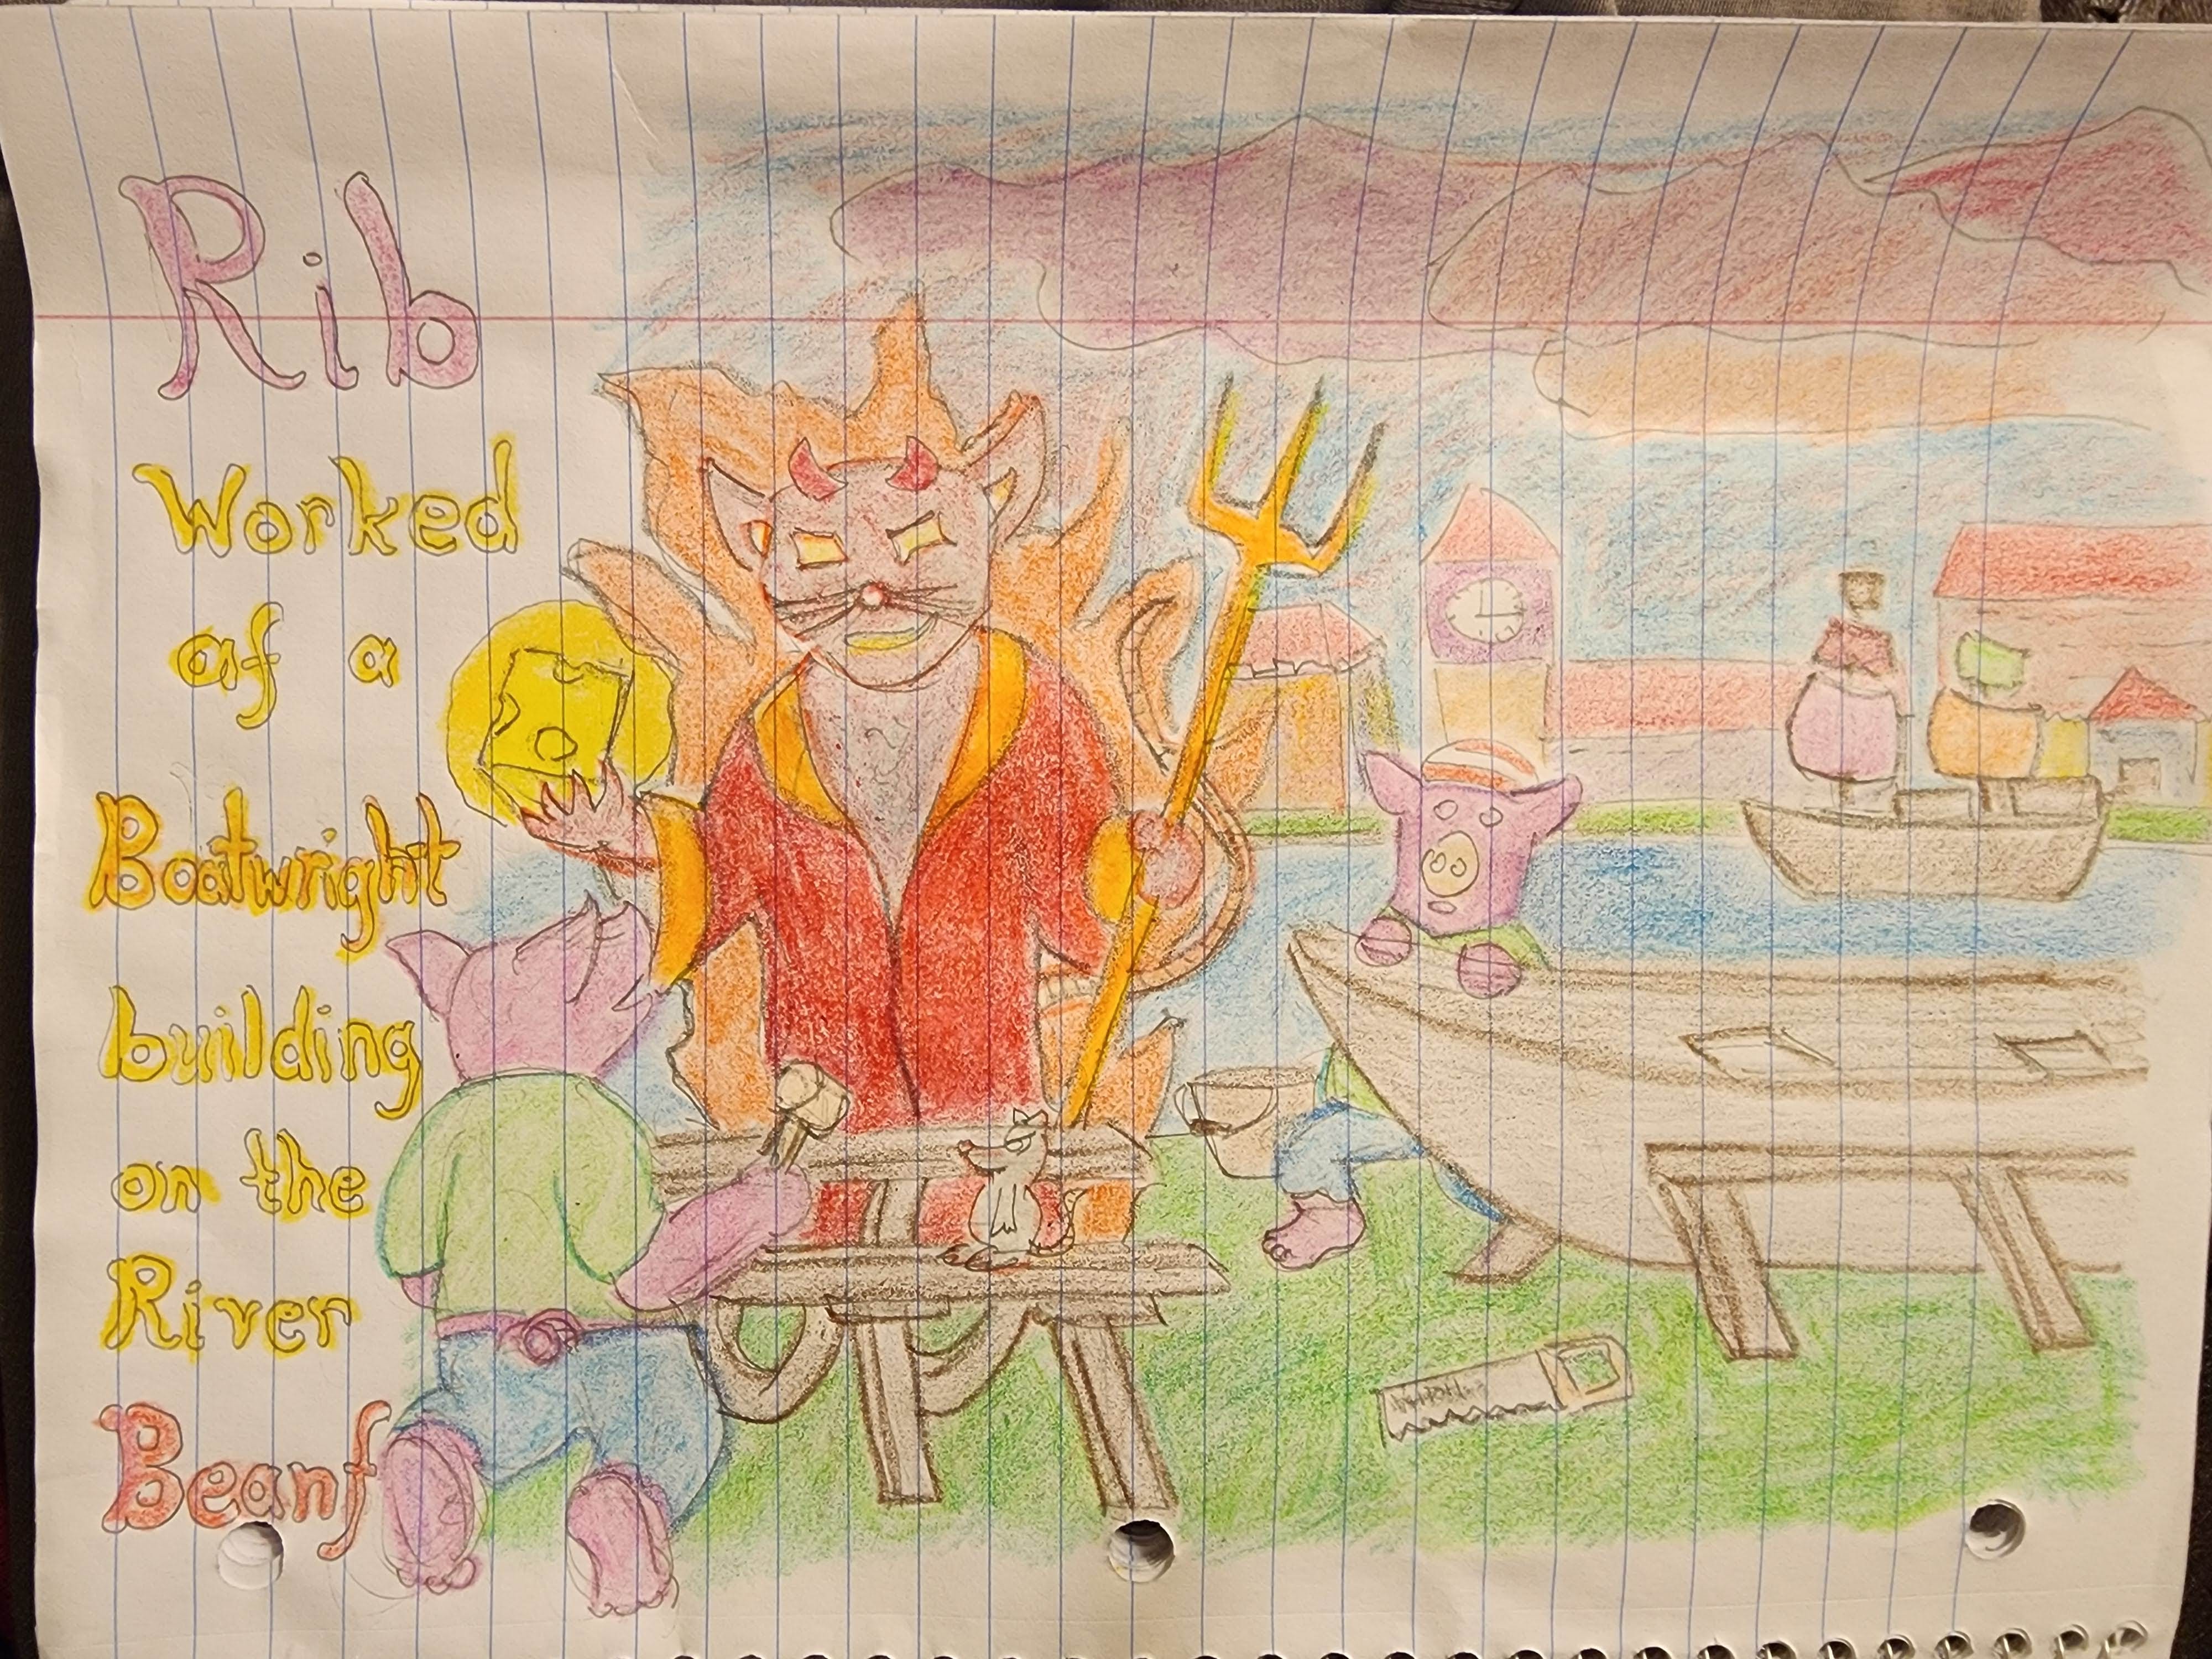 Rib
Worked
af a
Boatwright
building
on the
River
Beanf